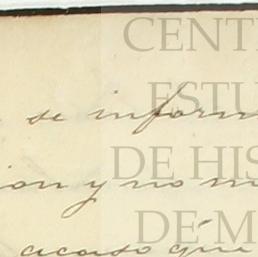 CENT
ESTU
se inform
DE HIS
ion y no m
DE M
acaso que